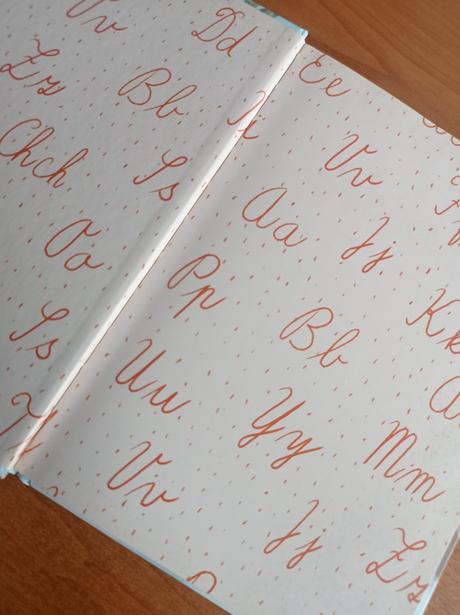 Vv
Dd
Zz
Bb
Chch
Ss
Oo
Ss
Ee
Vv
Aa
Jj
Pp
Bb
Kk
Uu
Yy
Mm
Vv
Jj
Zz